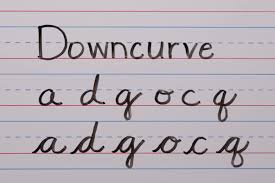 Downcurve
a d g o c q
a d g o c q